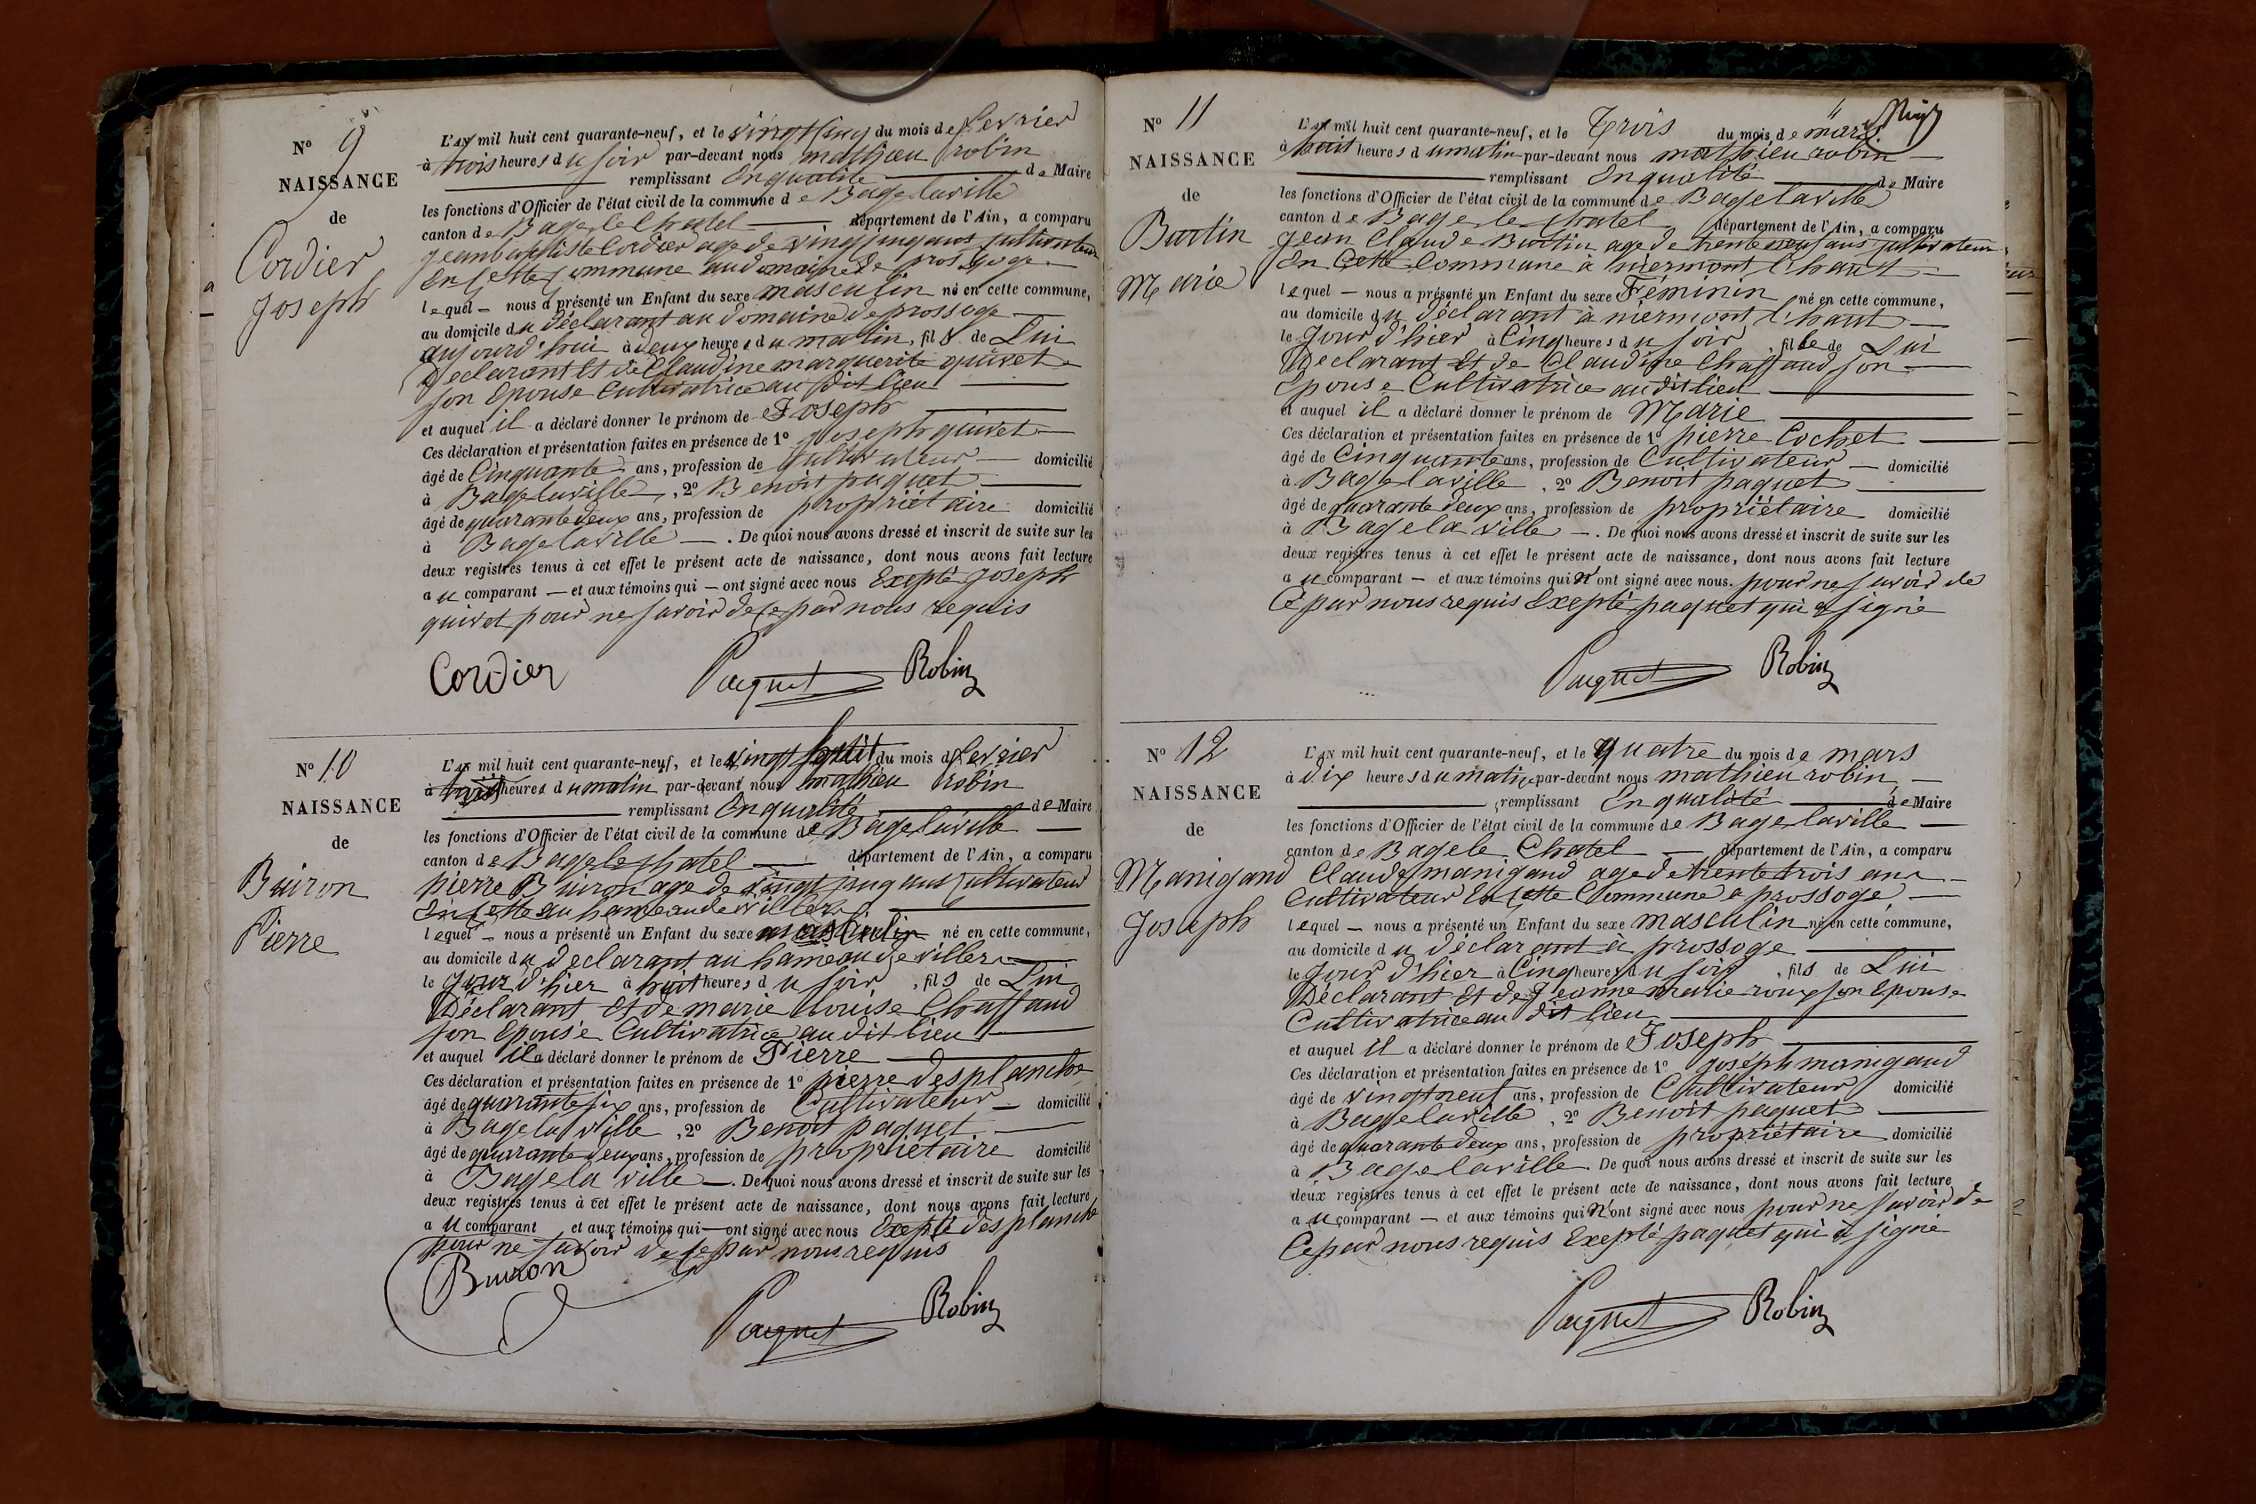 N° 9
NAISSANCE
de
Cordier
Joseph
L'AN mil huit cent quarante-neuf, et le vingt cinq du mois de fevrier
à trois heures du soir par-devant nous mathieu robin
remplissant En qualité de Maire
les fonctions d'Officier de l'état civil de la commune de Bagelaville
canton de Bage le Chatel département de l'Ain, a comparu
jean baptiste Cordier age de vingt cinq ans cultivateur
en cette commune au domaine de prossoge
lequel nous a présenté un Enfant du sexe masculin né en cette commune,
au domicile du déclarant au domaine de prossoge
aujourd'hui à deux heures du matin, fils de Lui
Declarant Et de Claudine marguerite quivet
son Epouse Cultivatrice au dit lieu
et auquel il a déclaré donner le prénom de Joseph
Ces déclaration et présentation faites en présence de 1° joseph quivet
âgé de Cinquante ans, profession de cultivateur domicilié
à Bagelaville, 2° Benoit paquet
âgé de quarante deux ans, profession de propriétaire domicilié
à Bagelaville. De quoi nous avons dressé et inscrit de suite sur les
deux registres tenus à cet effet le présent acte de naissance, dont nous avons fait lecture
au comparant et aux témoins qui ont signé avec nous Exepté joseph
quivet pour ne savoir de ce par nous requis
Cordier Paquet Robin
N° 10
NAISSANCE
de
Buiron
Pierre
L'AN mil huit cent quarante-neuf, et le vingt huit du mois de fevrier
à heures du matin par-devant nous mathieu robin
remplissant En qualité de Maire
les fonctions d'Officier de l'état civil de la commune de Bagelaville
canton de Bage le Chatel département de l'Ain, a comparu
pierre Buiron age de vingt cinq ans cultivateur
en cette au hameau de villers
lequel nous a présenté un Enfant du sexe masculin né en cette commune,
au domicile du declarant au hameau de villers
le jour d'hier à huit heures du soir, fils de Lui
Déclarant Et de marie Louise Chaffaud
son Epouse Cultivatrice au dit lieu
et auquel il a déclaré donner le prénom de Pierre
Ces déclaration et présentation faites en présence de 1° pierre desplanche
âgé de quarante six ans, profession de Cultivateur domicilié
à Bagelaville, 2° Benoit paquet
âgé de quarante deux ans, profession de propriétaire domicilié
à Bage la ville. De quoi nous avons dressé et inscrit de suite sur les
deux registres tenus à cet effet le présent acte de naissance, dont nous avons fait lecture
au comparant et aux témoins qui ont signé avec nous Exepté desplanche
pour ne savoir de ce par nous requis
Buiron Paquet Robin
N° 11
NAISSANCE
de
Burtin
Marie
L'AN mil huit cent quarante-neuf, et le Trois du mois de mars
à huit heures du matin par-devant nous mathieu robin
remplissant En qualité de Maire
les fonctions d'Officier de l'état civil de la commune de Bagelaville
canton de Bage le Chatel département de l'Ain, a comparu
Jean Claude Burtin age de trente neuf ans cultivateur
En Cette Commune à niermont l'haut
lequel nous a présenté un Enfant du sexe Féminin né en cette commune,
au domicile du déclarant à niermont l'haut
le jour d'hier à Cinq heures du soir, fille de Lui
Declarant Et de Claudine Chaffaud son
Epouse Cultivatrice au dit lieu
et auquel il a déclaré donner le prénom de Marie
Ces déclaration et présentation faites en présence de 1° pierre Cochet
âgé de Cinquante ans, profession de Cultivateur domicilié
à Bagelaville, 2° Benoit paquet
âgé de quarante deux ans, profession de propriétaire domicilié
à Bagela ville. De quoi nous avons dressé et inscrit de suite sur les
deux registres tenus à cet effet le présent acte de naissance, dont nous avons fait lecture
au comparant et aux témoins qui n'ont signé avec nous. pour ne savoir de
Ce par nous requis Exepté paquet qui a signé
Paquet Robin
N° 12
NAISSANCE
de
Manigand
Joseph
L'AN mil huit cent quarante-neuf, et le quatre du mois de mars
à dix heures du matin par-devant nous mathieu robin
remplissant En qualité de Maire
les fonctions d'Officier de l'état civil de la commune de Bagelaville
canton de Bage le Chatel département de l'Ain, a comparu
Claude manigand age de trente trois ans
Cultivateur En cette Commune a prossoge
lequel nous a présenté un Enfant du sexe masculin né en cette commune,
au domicile du déclarant à prossoge
le jour d'hier à Cinq heures du soir, fils de Lui
Déclarant Et de Jeanne marie roux son Epouse
Cultivatrice au dit lieu
et auquel il a déclaré donner le prénom de Joseph
Ces déclaration et présentation faites en présence de 1° joseph manigand
âgé de vingt neuf ans, profession de Cultivateur domicilié
à Bagelaville, 2° Benoit paquet
âgé de quarante deux ans, profession de propriétaire domicilié
à Bagelaville. De quoi nous avons dressé et inscrit de suite sur les
deux registres tenus à cet effet le présent acte de naissance, dont nous avons fait lecture
au comparant et aux témoins qui n'ont signé avec nous pour ne savoir de
Ce par nous requis Exepté paquet qui a signé
Paquet Robin